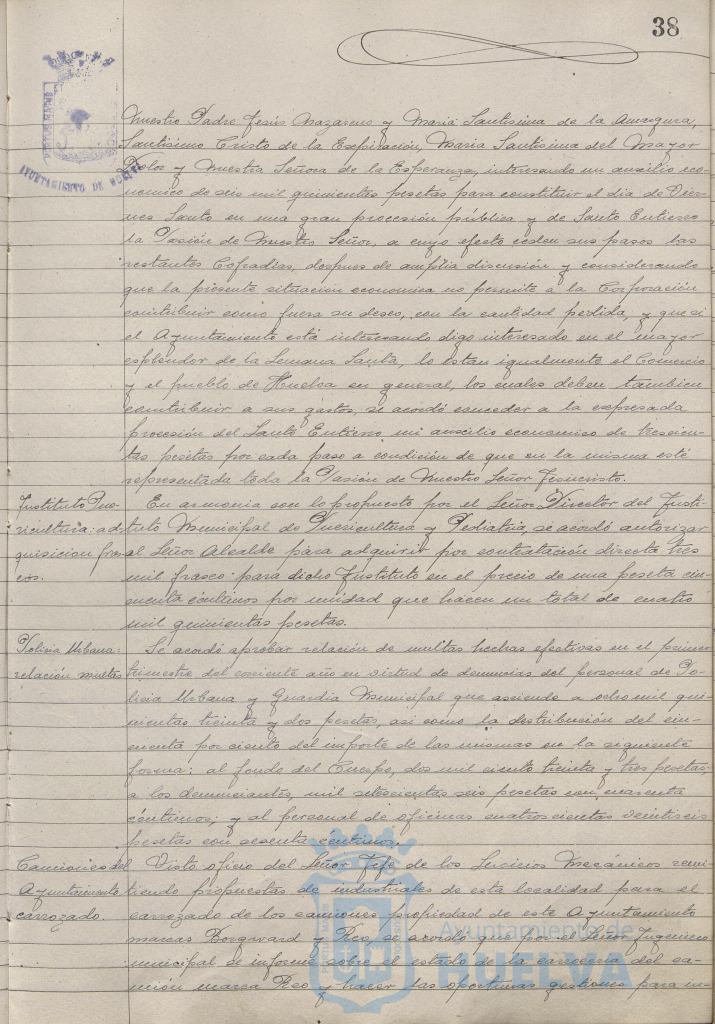 38
AYUNTAMIENTO DE HUELVA
Nuestro Padre Jesús Nazareno y Maria Santisima de la Amargura,
Santisimo Cristo de la Expiración, Maria Santisima del Mayor
Dolor y Nuestra Señora de la Esperanza, interesando un auxilio eco-
nómico de seis mil quinientas pesetas para constituir el dia de Vier-
nes Santo en una gran procesión pública y de Santo Entierro
la Pasión de Nuestro Señor, a cuyo efecto ceden sus pasos las
restantes Cofradias, despues de amplia discusión y considerando
que la presente situación economica no permite a la Corporación
contribuir como fuera su deseo, con la cantidad pedida, y que si
el Ayuntamiento está interesando digo interesado en el mayor
esplendor de la Semana Santa, lo estan igualmente el Comercio
y el pueblo de Huelva en general, los cuales deben tambien
contribuir a sus gastos, se acordó conceder a la expresada
procesión del Santo Entierro un auxilio economico de trescien-
tas pesetas por cada paso a condición de que en la misma esté
representada toda la Pasión de Nuestro Señor Jesucristo.
Instituto Pue-
ricultura: ad-
quisicion fras-
cos.
En armonia con lo propuesto por el Señor Director del Insti-
tuto Municipal de Puericultura y Pediatria, se acordó autorizar
al Señor Alcalde para adquirir por contratación directa tres
mil frascos para dicho Instituto en el precio de una peseta cin-
cuenta céntimos por unidad que hacen un total de cuatro
mil quinientas pesetas.
Policia Urbana:
relación multas
Se acordó aprobar relación de multas hechas efectivas en el primer
trimestre del corriente año en virtud de denuncias del personal de Po-
licia Urbana y Guardia Municipal que asciende a ocho mil qui-
nientas treinta y dos pesetas, asi como la distribución del cin-
cuenta por ciento del importe de las mismas en la siguiente
forma: al fondo del Cuerpo, dos mil ciento treinta y tres pesetas;
a los denunciantes, mil setecientas seis pesetas con cuarenta
céntimos; y al personal de oficinas cuatrocientas veintiseis
pesetas con sesenta céntimos.
Camiones del
Ayuntamiento
carrozado.
Visto oficio del Señor Jefe de los Servicios Mecánicos remi-
tiendo propuestas de industriales de esta localidad para el
carrozado de los camiones propiedad de este Ayuntamiento
marcas Borgward y Reo, se acordó que por el Señor Ingeniero
municipal se informe sobre el estado de la carroceria del ca-
mión marca Reo y hacer las oportunas gestiones para in-
Ayuntamiento de
HUELVA